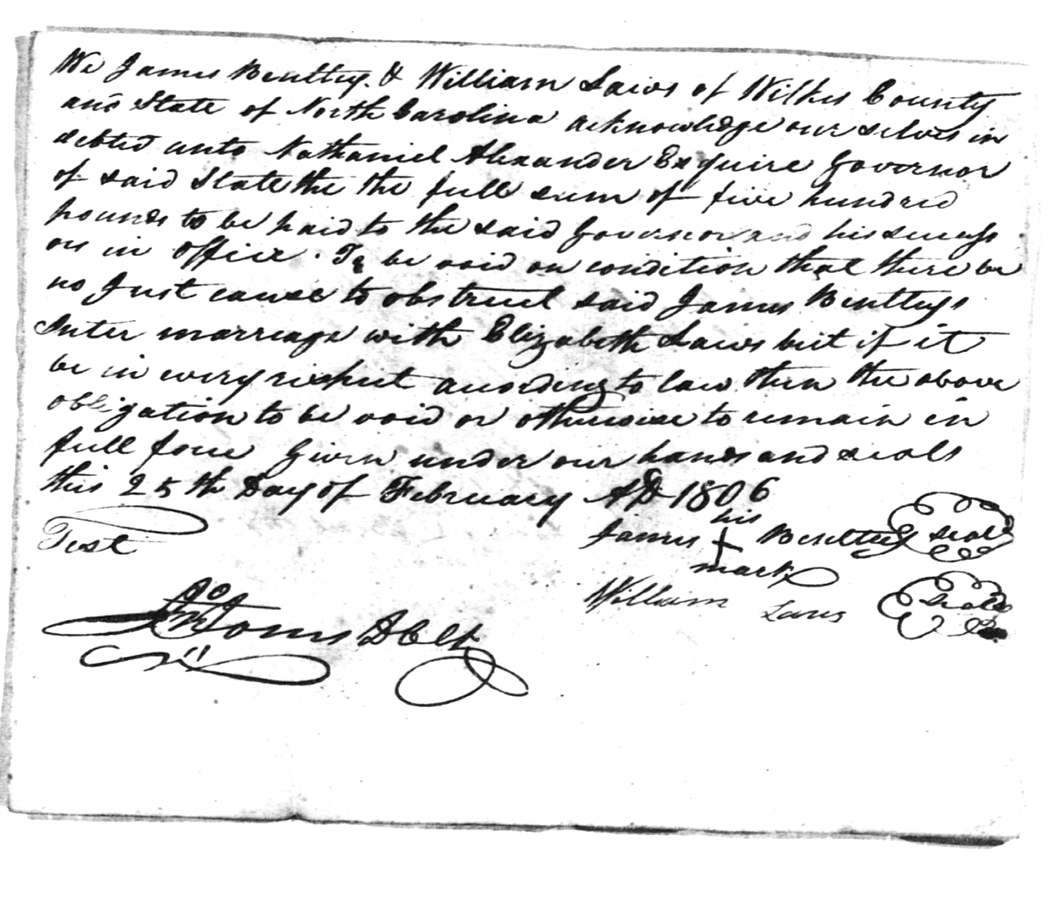 We James Bentley & William Laws of Wilkes County
and State of North Carolina acknowledge our selves in
debted unto Nathaniel Alexander Exquire Governor
of said State the the full sum of five hundred
pounds to be paid to the said Governor and his success
ors in Office. To be void on condition that there be
no Just cause to obstruct said James Bentleys
Inter marriage with Elizabeth Laws but if it
be in every respect according to law then the above
obligation to be void or otherwise to remain in
full force Given under our hands and seals
this 25th Day of February AD 1806
his
James + Bentley seal
mark
Test
William Laws seal
Jno Jones D Clk